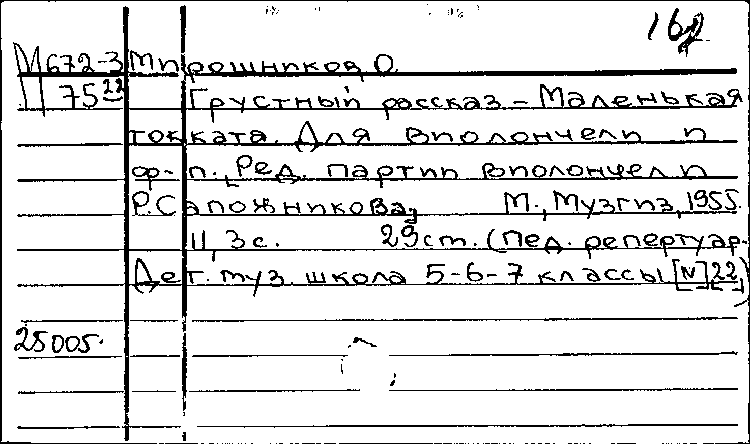 162
М672-3 Мирошников О.
75 22 Грустный рассказ – Маленькая
токката. Для виолончели и
ф-п. Ред. партии виолончели
Р. Сапожникова, М., Музгиз, 1955.
11, 3 с. 29 см. (Пед. репертуар.
Дет. муз. школа 5-6-7 классы [N] 22)
25005.